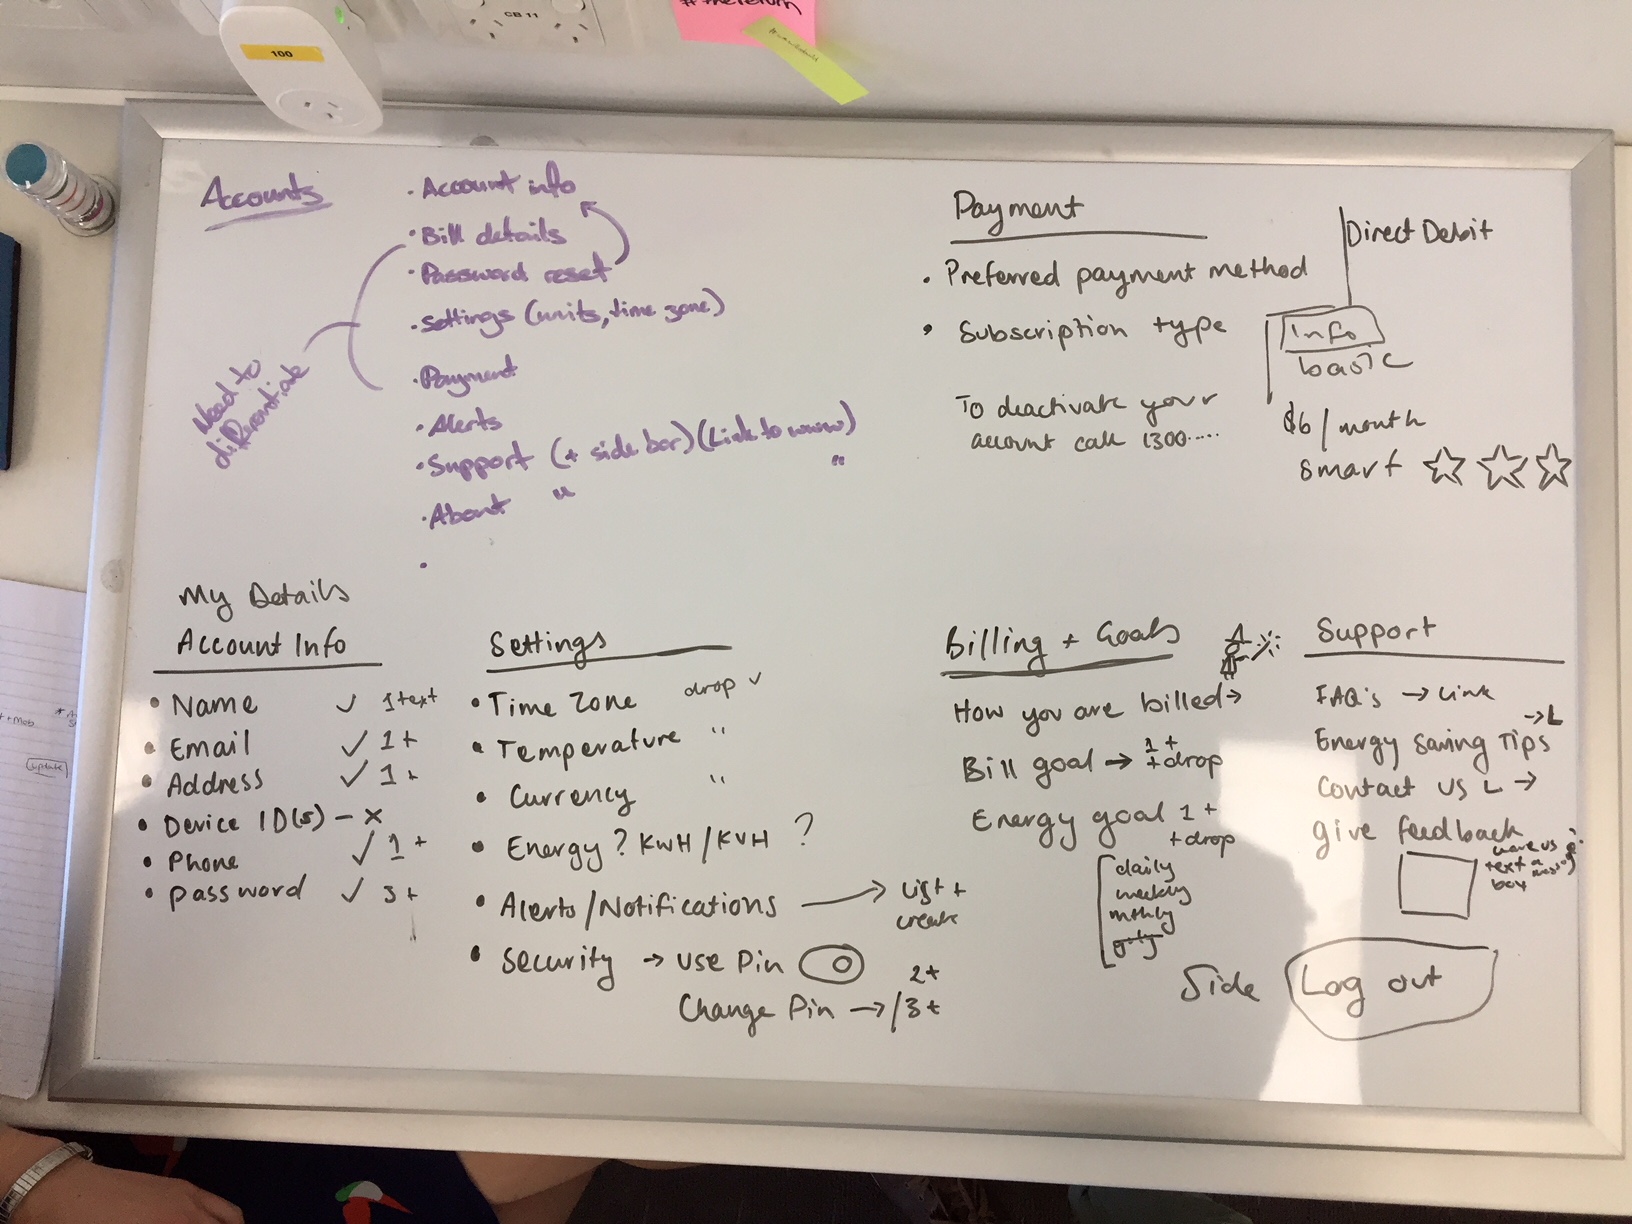 CB 11
100
Accounts
· Account info
· Bill details
· Password reset
· Settings (units, time zone)
· Payment
· Alerts
· Support (+ side bar) (Link to www)
· About " "
·
Need to
differentiate
Payment
Direct Debit
· Preferred payment method
· Subscription type
Info
basic
To deactivate your
account call 1300.....
$6/month
smart ☆ ☆ ☆
My Details
Account Info
• Name ✓ 1 text
• Email ✓ 1t
• Address ✓ 1t
• Device ID(s) – x
• Phone ✓ 1t
• Password ✓ 3t
Settings
• Time Zone drop ✓
• Temperature "
• Currency "
• Energy? KWH/KVH ?
• Alerts/Notifications → List +
create
• Security → Use Pin
Change Pin → 2t/3t
Billing + Goals
How you are billed →
Bill goal → 1t
+drop
Energy goal 1t
+drop
daily
weekly
mthly
Support
FAQ's → Link
Energy Saving Tips → L
Contact us L →
give feedback
text
box
Side Log out
update